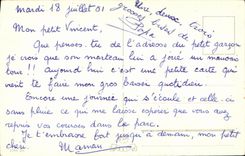 mardi 18 juillet 61
grosses bises de
Mon petit Vincent,
Que penses-tu de l'adresse du petit garçon
je crois que son marteau lui a joué un mauvais
tour ! aujourd'hui c'est une petite carte qui
vient te faire mon gros baiser quotidien.
Encore une journée qui s'écoule et celle-ci
sans pluie ce qui me laisse espérer que vous avez
repris vos courses dans le parc.
Je t'embrasse fort jusqu'à demain, mon petit
chéri. Maman